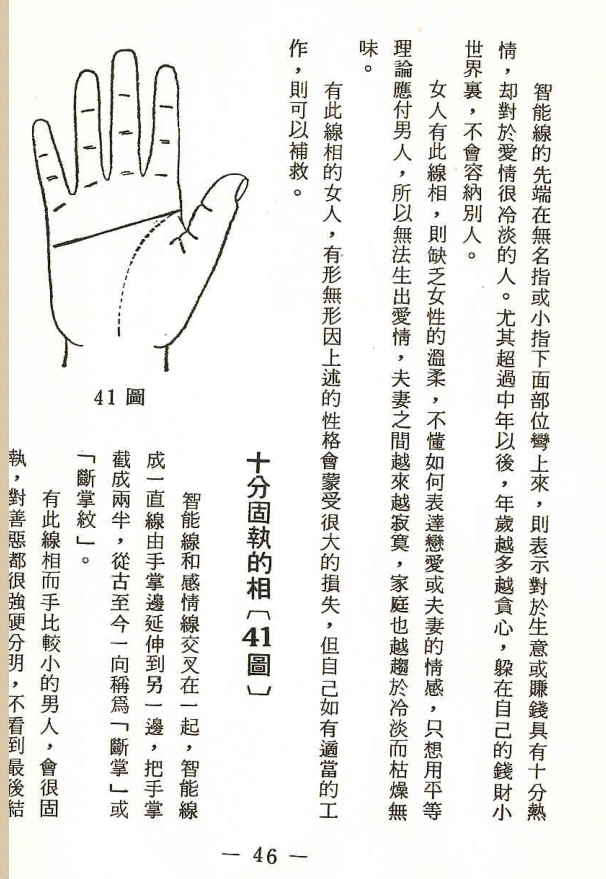 智能線的先端在無名指或小指下面部位彎上來，則表示對於生意或賺錢具有十分熱
情，却對於愛情很冷淡的人。尤其超過中年以後，年歲越多越貪心，躲在自己的錢財小
世界裏，不會容納別人。
女人有此線相，則缺乏女性的溫柔，不懂如何表達戀愛或夫妻的情感，只想用平等
理論應付男人，所以無法生出愛情，夫妻之間越來越寂寞，家庭也越趨於冷淡而枯燥無
味。
有此線相的女人，有形無形因上述的性格會蒙受很大的損失，但自己如有適當的工
作，則可以補救。
十分固執的相〔41圖〕
智能線和感情線交叉在一起，智能線
成一直線由手掌邊延伸到另一邊，把手掌
截成兩半，從古至今一向稱爲「斷掌」或
「斷掌紋」。
有此線相而手比較小的男人，會很固
執，對善惡都很強硬分明，不看到最後結
41 圖
— 46 —